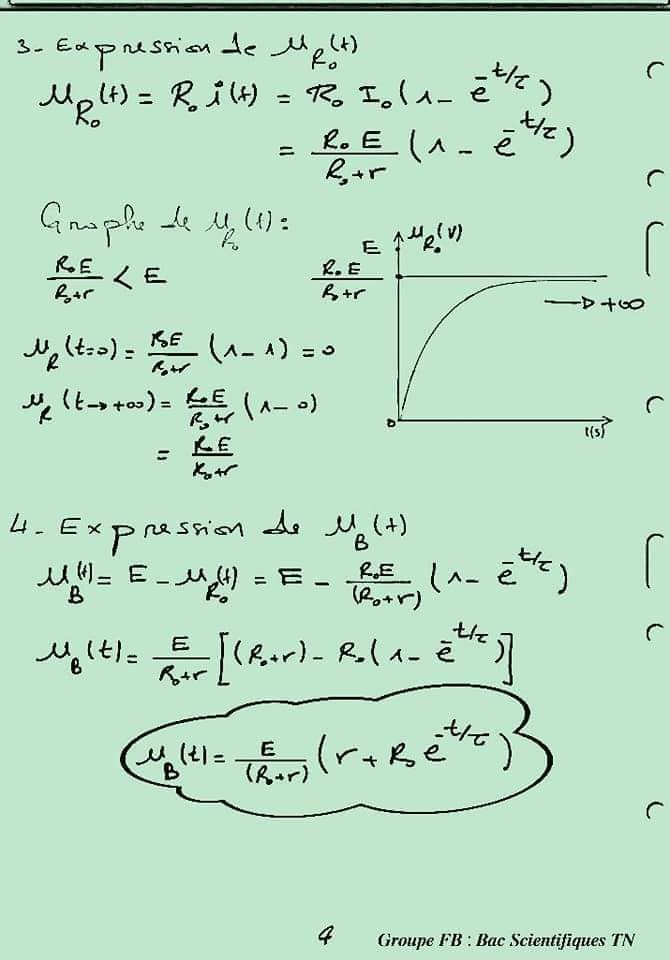 3- Expression de u_R₀(t)
u_R₀(t) = R₀ i(t) = R₀ I₀ (1 - e^-t/τ)
= R₀ E / R₀+r (1 - e^-t/τ)
Graphe de u_R₀(t) :
R₀E / R₀+r < E
E
u_R₀(V)
R₀ E / R₀+r
→ +∞
0
t(s)
u_R(t=0) = R₀E / R₀+r (1-1) = 0
u_R(t→+∞) = R₀E / R₀+r (1-0)
= R₀E / R₀+r
4- Expression de u_B(t)
u_B(t) = E - u_R₀(t) = E - R₀E / (R₀+r) (1 - e^-t/τ)
u_B(t) = E / R₀+r [(R₀+r) - R₀(1 - e^-t/τ)]
u_B(t) = E / (R₀+r) (r + R₀ e^-t/τ)
4
Groupe FB : Bac Scientifiques TN